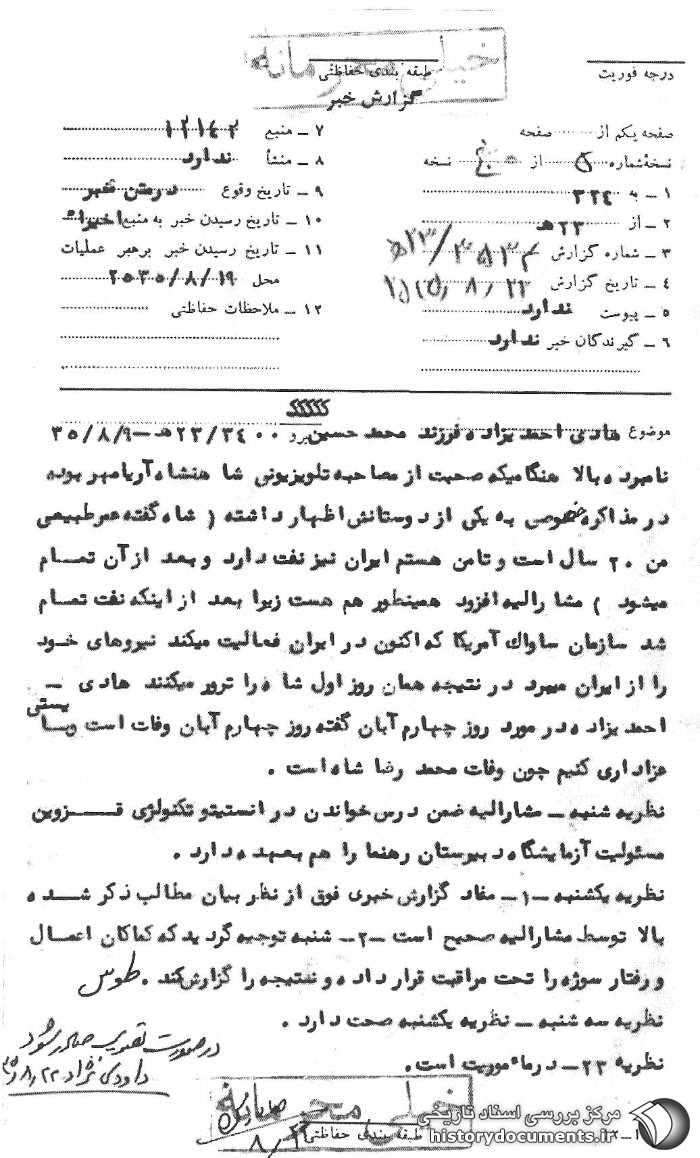 خیلی محرمانه
درجه فوریت
طبقه بندی حفاظتی
گزارش خبر
صفحه یکم از صفحه
نسخهٔ شماره ۵ از نسخه
۱ - به ۳۲۴
۲ - از ۲۳هـ
۳ - شماره گزارش
۴ - تاریخ گزارش
۵ - پیوست ندارد
۶ - گیرندگان خبر ندارد
۷ - منبع ۱۲۱۴۲
۸ - منشأ ندارد
۹ - تاریخ وقوع درمتن خبر
۱۰ - تاریخ رسیدن خبر به منبع اخیرا"
۱۱ - تاریخ رسیدن خبر برهبر عملیات
محل ۲۵۳۵/۸/۱۹
۱۲ - ملاحظات حفاظتی
موضوع هادی احمدیزاده فرزند محمد حسین پیرو ۲۳/۳۴۰۰هـ-۳۵/۸/۹
نامبرده بالا هنگامیکه صحبت از مصاحبه تلویزیونی شاهنشاه آریامهر بوده
در مذاکره خصوصی به یکی از دوستانش اظهار داشته ( شاه گفته عمر طبیعی
من ۲۰ سال است و تا من هستم ایران نیز نفت دارد و بعد از آن تمام
میشود ) مشارالیه افزود همینطور هم هست زیرا بعد از اینکه نفت تمام
شد سازمان ساواك آمریکا که اکنون در ایران فعالیت میکند نیروهای خود
را از ایران میبرد در نتیجه همان روز اول شاه را ترور میکنند هادی -
احمدیزاده در مورد روز چهارم آبان گفته روز چهارم آبان وفات است و بایستی
عزاداری کنیم چون وفات محمد رضا شاه است .
نظریه شنبه - مشارالیه ضمن درس خواندن در انستیتو تکنولژی قزوین
مسئولیت آزمایشگاه دبیرستان رهنما را هم بعهده دارد .
نظریه یکشنبه -۱- مفاد گزارش خبری فوق از نظر بیان مطالب ذکر شده
بالا توسط مشارالیه صحیح است -۲- شنبه توجیه گردید که کماکان اعمال
و رفتار سوژه را تحت مراقبت قرار داده و نتیجه را گزارش کند . طوسی
نظریه سه شنبه - نظریه یکشنبه صحت دارد .
نظریه ۲۳ - در ماموریت است .
در صورت تصویب صادر شود
داودی نژاد ۸/۲۲
خیلی محرمانه
طبقه بندی حفاظتی
مرکز بررسی اسناد تاریخی
historydocuments.ir